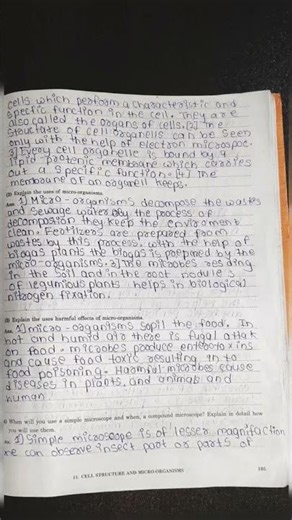 cells which perfoam a characteristic and
specfic function in the cell. They are
also called the organs of cells. [2] The
structure of cell organells can be seen
only with the help of electron microspoc.
3] Every cell organelle is bound by a
lipid protenic membrane which carries
out a specific function. [4] The
membrane of an organell keeps.
(2) Explain the uses of micro-organisms.
Ans. 1] Micro-organisms decompose the wastes
and sewage water by the process of
decomposion they keep the enviroment
clean. Featilizers are prepared from
wastes by this process. with the help of
biogas plants the biogas is prepared by the
micro organisms. 2] The microbes residing
in the soil and in the root nodules
of legunious plants helps in biological
nitrogen fixation.
(3) Explain the uses harmful effects of micro-organisms.
Ans. 1] micro-organisms sopil the food. In
hot and humid air there is fugal attak
on food. microbes produce enterotoxins
and cause food toxic resulting in to
food poisoning. Harmful microbes cause
diseases in plants, and animals and
human
When will you use a simple microscope and when, a compound microscope? Explain in detail how
you will use them.
Ans. 1] Simple microscope is of lesser magnifaction
we can observe insect part or parts of
11. CELL STRUCTURE AND MICRO-ORGANISMS